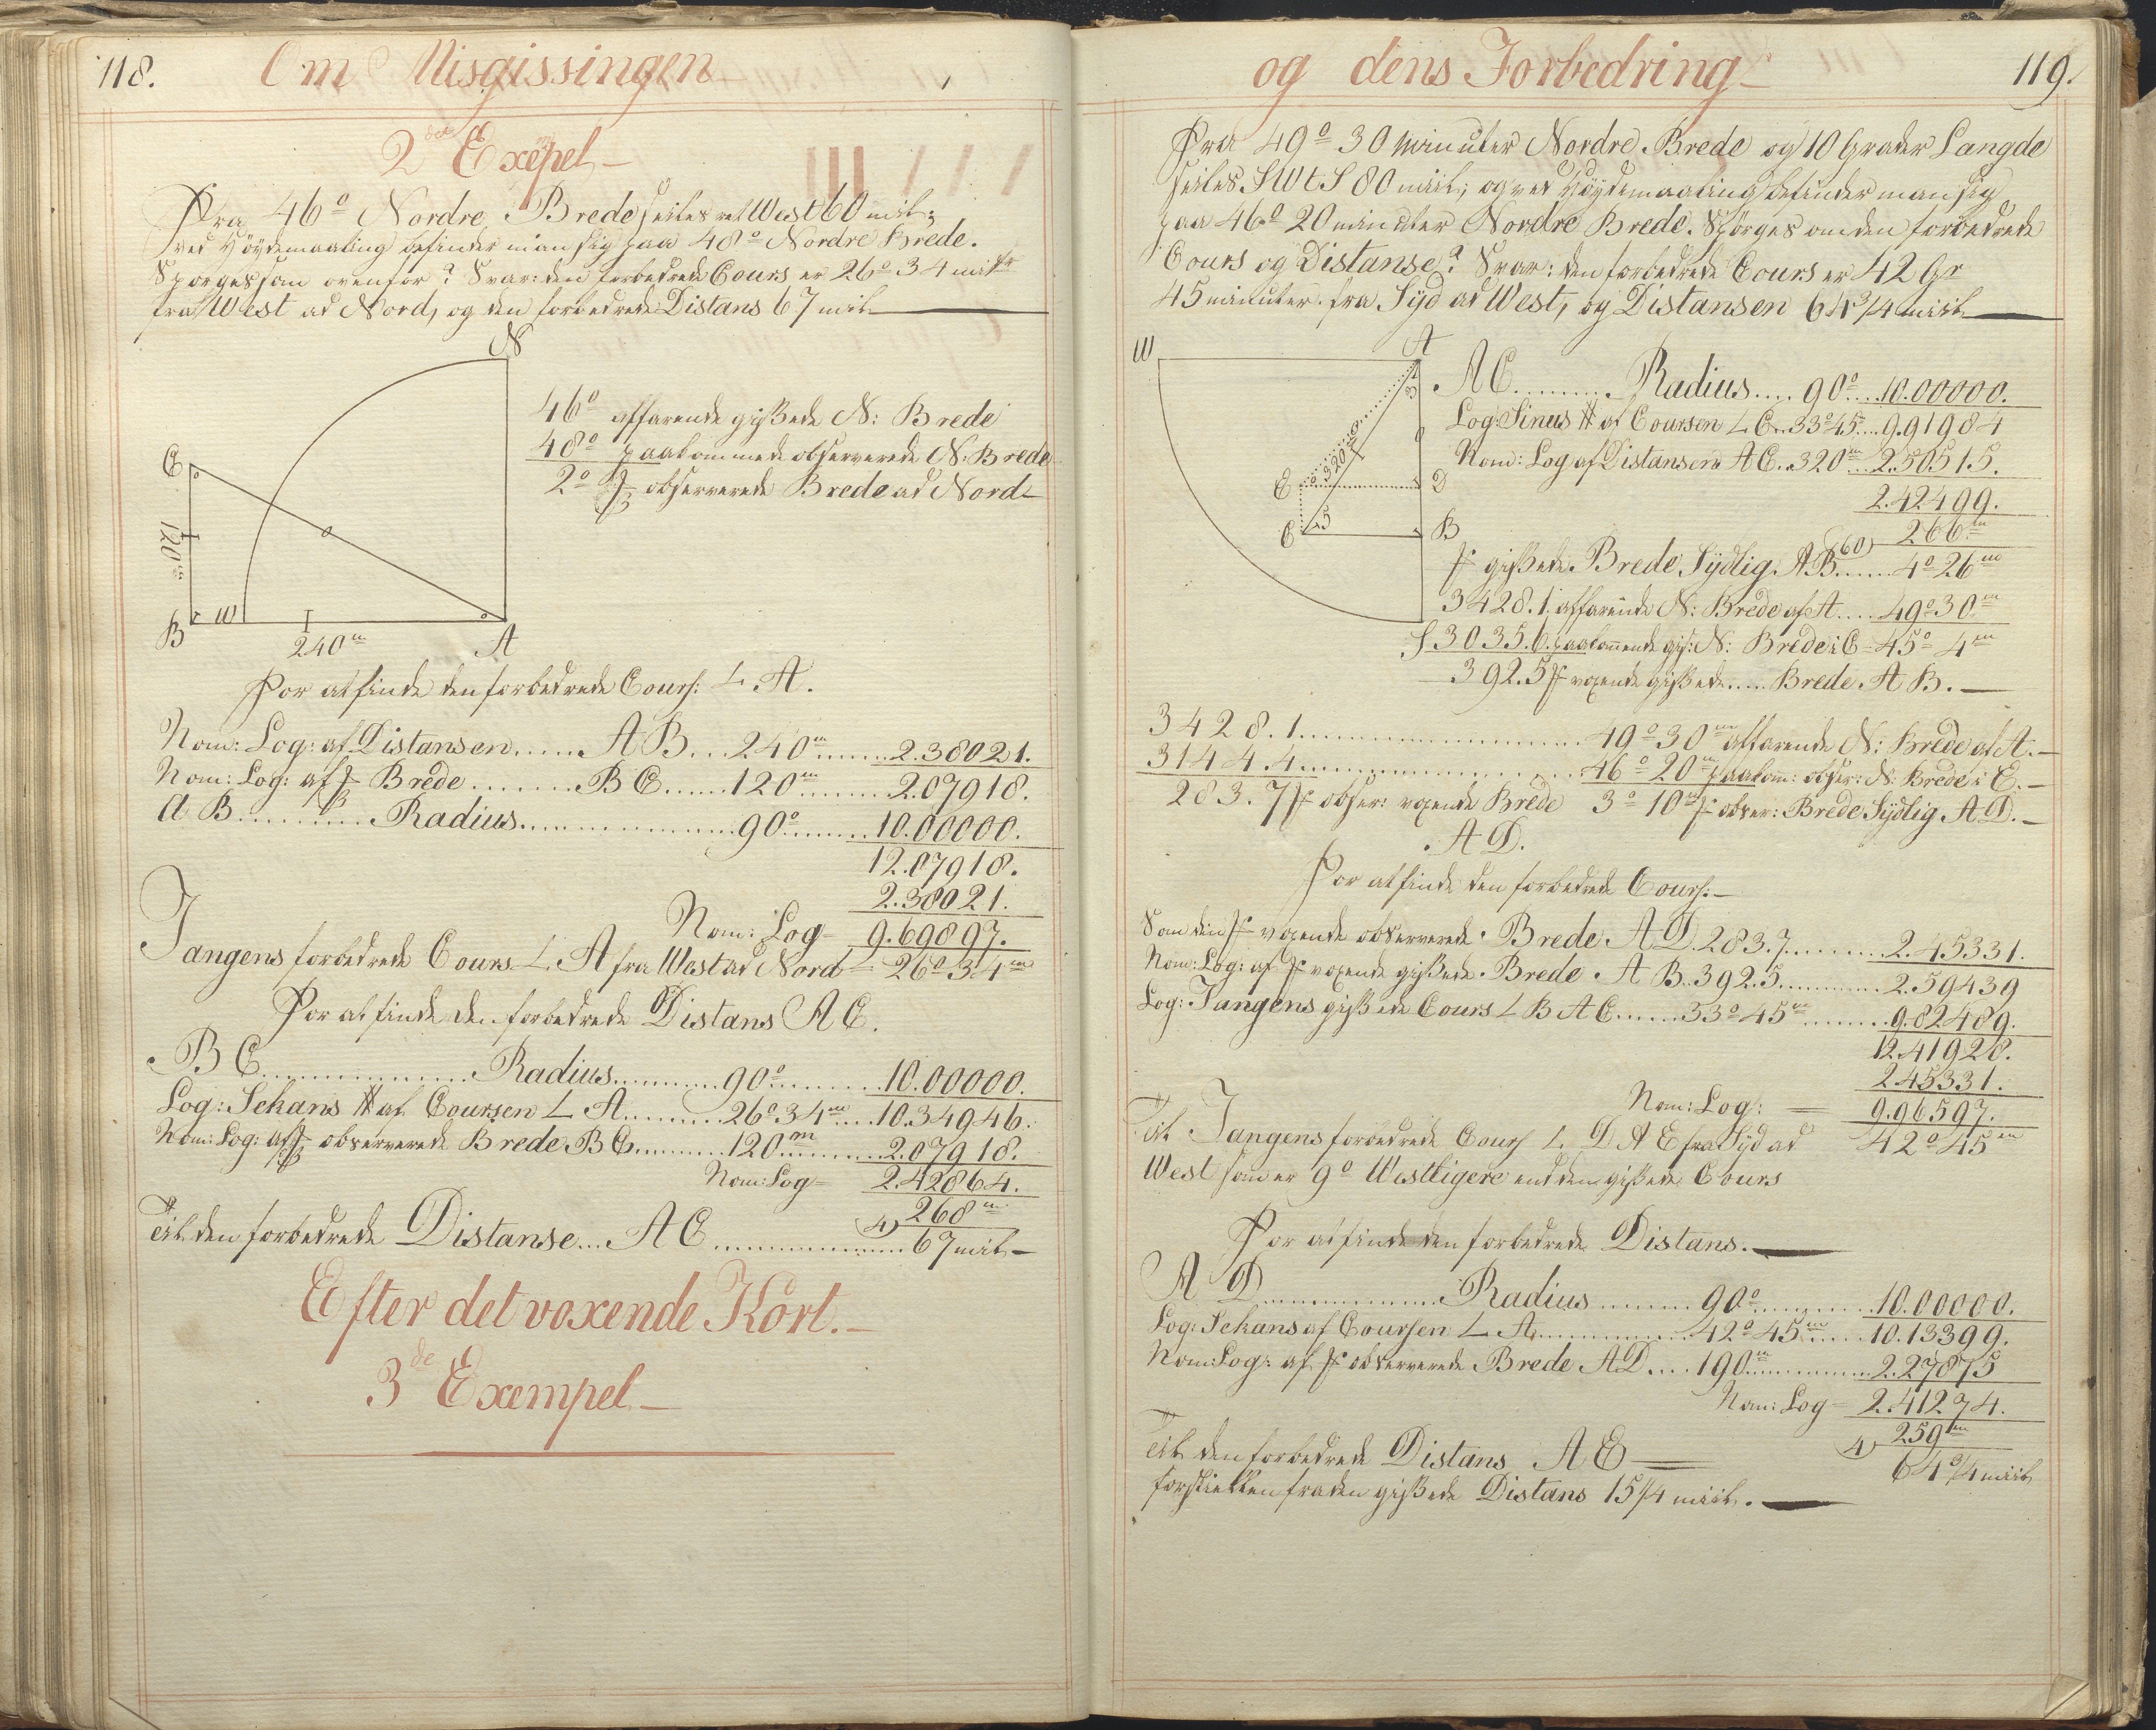 118.
Om Misgissingen
2det Exepel
Fra 46° Nordre Brede seiles ret West 60 mil;
ved Höydemaaling befinder man sig paa 48° Nordre Brede.
Spörges som ovenfor? Svar: den forbedrede Cours er 26° 34 mitr
fra West ad Nord, og den forbedrede Distans 67 mil
N
C
120m
B
W
240m
A
46° affarende gissede N: Brede
48° paakommede observerede N: Brede
2° observerede Brede ad Nord
For at finde den forbedrede Cours: L A.
Nom: Log: af Distansen...... AB... 240m...... 2.38021.
Nom: Log: af Brede........ BC...... 120m........ 2.07918.
AB............ Radius.................. 90°........ 10.00000.
12.07918.
2.38021.
Nom: Log= 9.69897.
Tangens forbedrede Cours L A fra West ad Nord = 26° 34m
For at finde den forbedrede Distans AC.
BC................ Radius.......... 90°.......... 10.00000.
Log: Sekans af Coursen L A........ 26° 34m.... 10.34946.
Nom: Log: af observerede Brede BC......... 120m......... 2.07918.
Nom: Log= 2.42864.
268m
til den forbedrede Distanse... AC................ 4) 67 mil
Efter det voxende Kort.
3de Exempel
og dens Forbedring
119.
Fra 49° 30 Minuter Nordre Brede og 10 Grader Langde
seiles SWtS 80 miil; og ved Höydemaaling befinder man sig
paa 46° 20 minuter Nordre Brede. Spörges om den forbedrede
Cours og Distanse? Svar: den forbedrede Cours er 42 Gr
45 minuter fra Syd ad West, og Distansen 64 3/4 miil
W
A
3
320m
E
D
5
C
B
S
AC......... Radius.... 90°... 10.00000.
Log: Sinus af Coursen L C.. 33° 45... 9.91984
Nom: Log af Distansen AC.. 320m... 2.50515.
2.42499.
60) 266m
gissede Brede Sydlig AB...... 4° 26m
3428.1. affarende N: Brede af A.... 49° 30m
3035.6. paakommende gis: N: Brede i C= 45° 4m
392.5 voxende gissede..... Brede AB.
3428.1........................ 49° 30m affarende N: Brede af A.
3144.4........................ 46° 20m paakom: obser: N: Brede i E.
283.7 obser: voxende Brede 3° 10m obser: Brede Sydlig AD.
AD.
For at finde den forbedrede Cours:
Som den voxende observerede Brede AD 283.7.......... 2.45331.
Nom: Log: af voxende gissede Brede AB.. 392.5........... 2.59439
Log: Tangens gissede Cours L BAC...... 33° 45m........ 9.82489.
12.41928.
2.45331.
Nom: Log: = 9.96597.
til Tangens forbedrede Cours L DAE fra Syd ad 42° 45m
West som er 9° Westligere end den gissede Cours
For at finde den forbedrede Distans.
AD................ Radius......... 90°.......... 10.00000.
Log: Sekans af Coursen L A.............. 42° 45m..... 10.13399.
Nom: Log: af observerede Brede AD.... 190m.......... 2.27875
Nom: Log= 2.41274.
259m
til den forbedrede Distans AE 4) 64 3/4 miil
forskiellen fra den gissede Distans 15 1/4 miil.